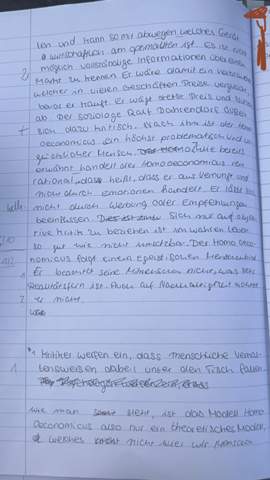 len und kann somit abwägen welches Gerät
wirtschaftlich am sinnvollsten ist. Es ist nicht
möglich vollständige Information über einen
Markt zu kennen. Er wäre damit ein Verbraucher
welcher in vielen Geschäften Preise vergleicht,
bevor er kauft. Er wägt stets Preis und Nutzen
ab. Der Soziologe Ralf Dahrendorf äußert
sich dazu kritisch. Nach ihm ist der homo
oeconomicus ein höchst problematisch und un
glücklicher Mensch. Wie bereits
erwähnt handelt der homo oeconomicus rein
rational, dass heißt, dass er aus Vernunft und
nicht durch emotionen handelt. Er lässt sich
nicht durch Werbung oder Empfehlungen
beeinflussen. Sich nur auf objek
tive Kritik zu beziehen ist im wahren Leben
so gut wie nicht umsetzbar. Der Homo oeco
nomicus folgt einem egoistischen Menschenbild.
Er beachtet seine Mitmenschen nicht, was sehr
ist. Auch auf Nachhaltigkeit achtet
er nicht.
*1 Kritiker werfen ein, dass menschliche Verhal
tensweisen dabei unter den Tisch fallen.
Wie man sieht, ist das Modell Homo
Oeconomicus also nur ein theoretisches Modell,
welches nicht wie wir Menschen